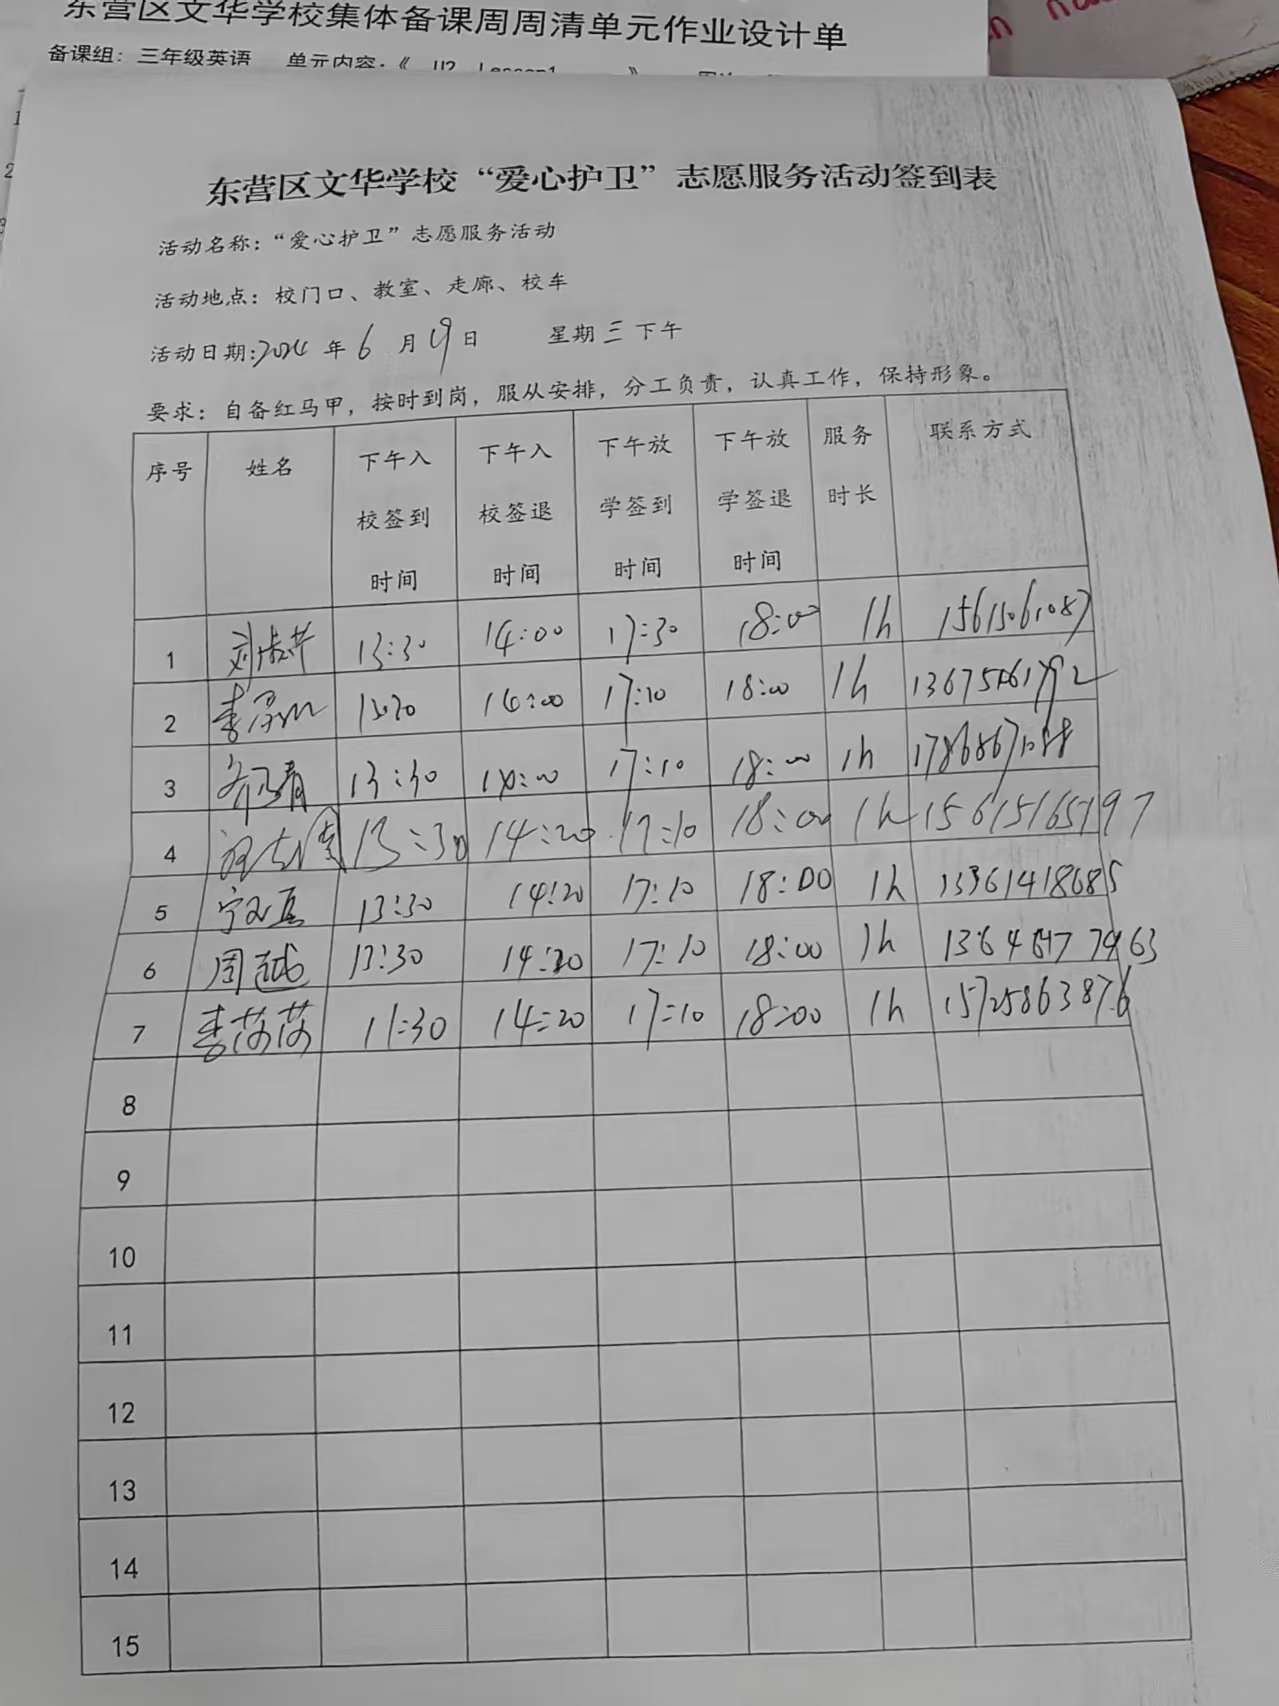 东营区文华学校集体备课周周清单元作业设计单
备课组：三年级英语 单元内容：《 U2 Lesson1 》
东营区文华学校“爱心护卫”志愿服务活动签到表
活动名称：“爱心护卫”志愿服务活动
活动地点：校门口、教室、走廊、校车
活动日期：2024 年 6 月 19 日 星期 三 下午
要求：自备红马甲，按时到岗，服从安排，分工负责，认真工作，保持形象。
序号 姓名 下午入校签到时间 下午入校签退时间 下午放学签到时间 下午放学签退时间 服务时长 联系方式
1 13:30 14:00 17:30 18:00 1h 15615061087
2 14:00 17:10 18:00 1h
3 13:30 14:00 17:10 18:00 1h
4 13:30 14:20 17:10 18:00 1h 15615165197
5 13:30 14:20 17:10 18:00 1h 13361418685
6 周越 13:30 14:20 17:10 18:00 1h
7 李莎莎 11:30 14:20 17:10 18:00 1h 15725863876
8
9
10
11
12
13
14
15